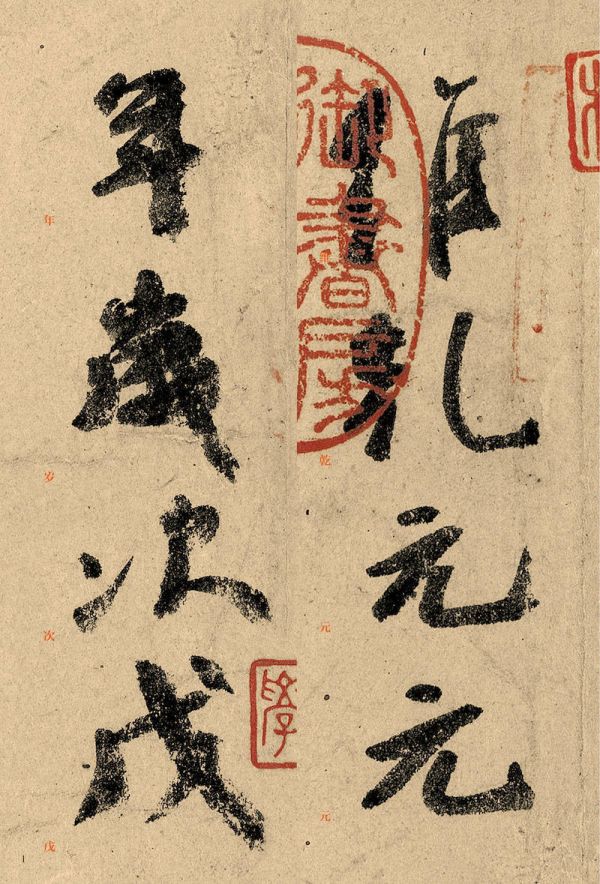 維乾元元
年歲次戊
御書房
乾
元
元
年
岁
次
戊